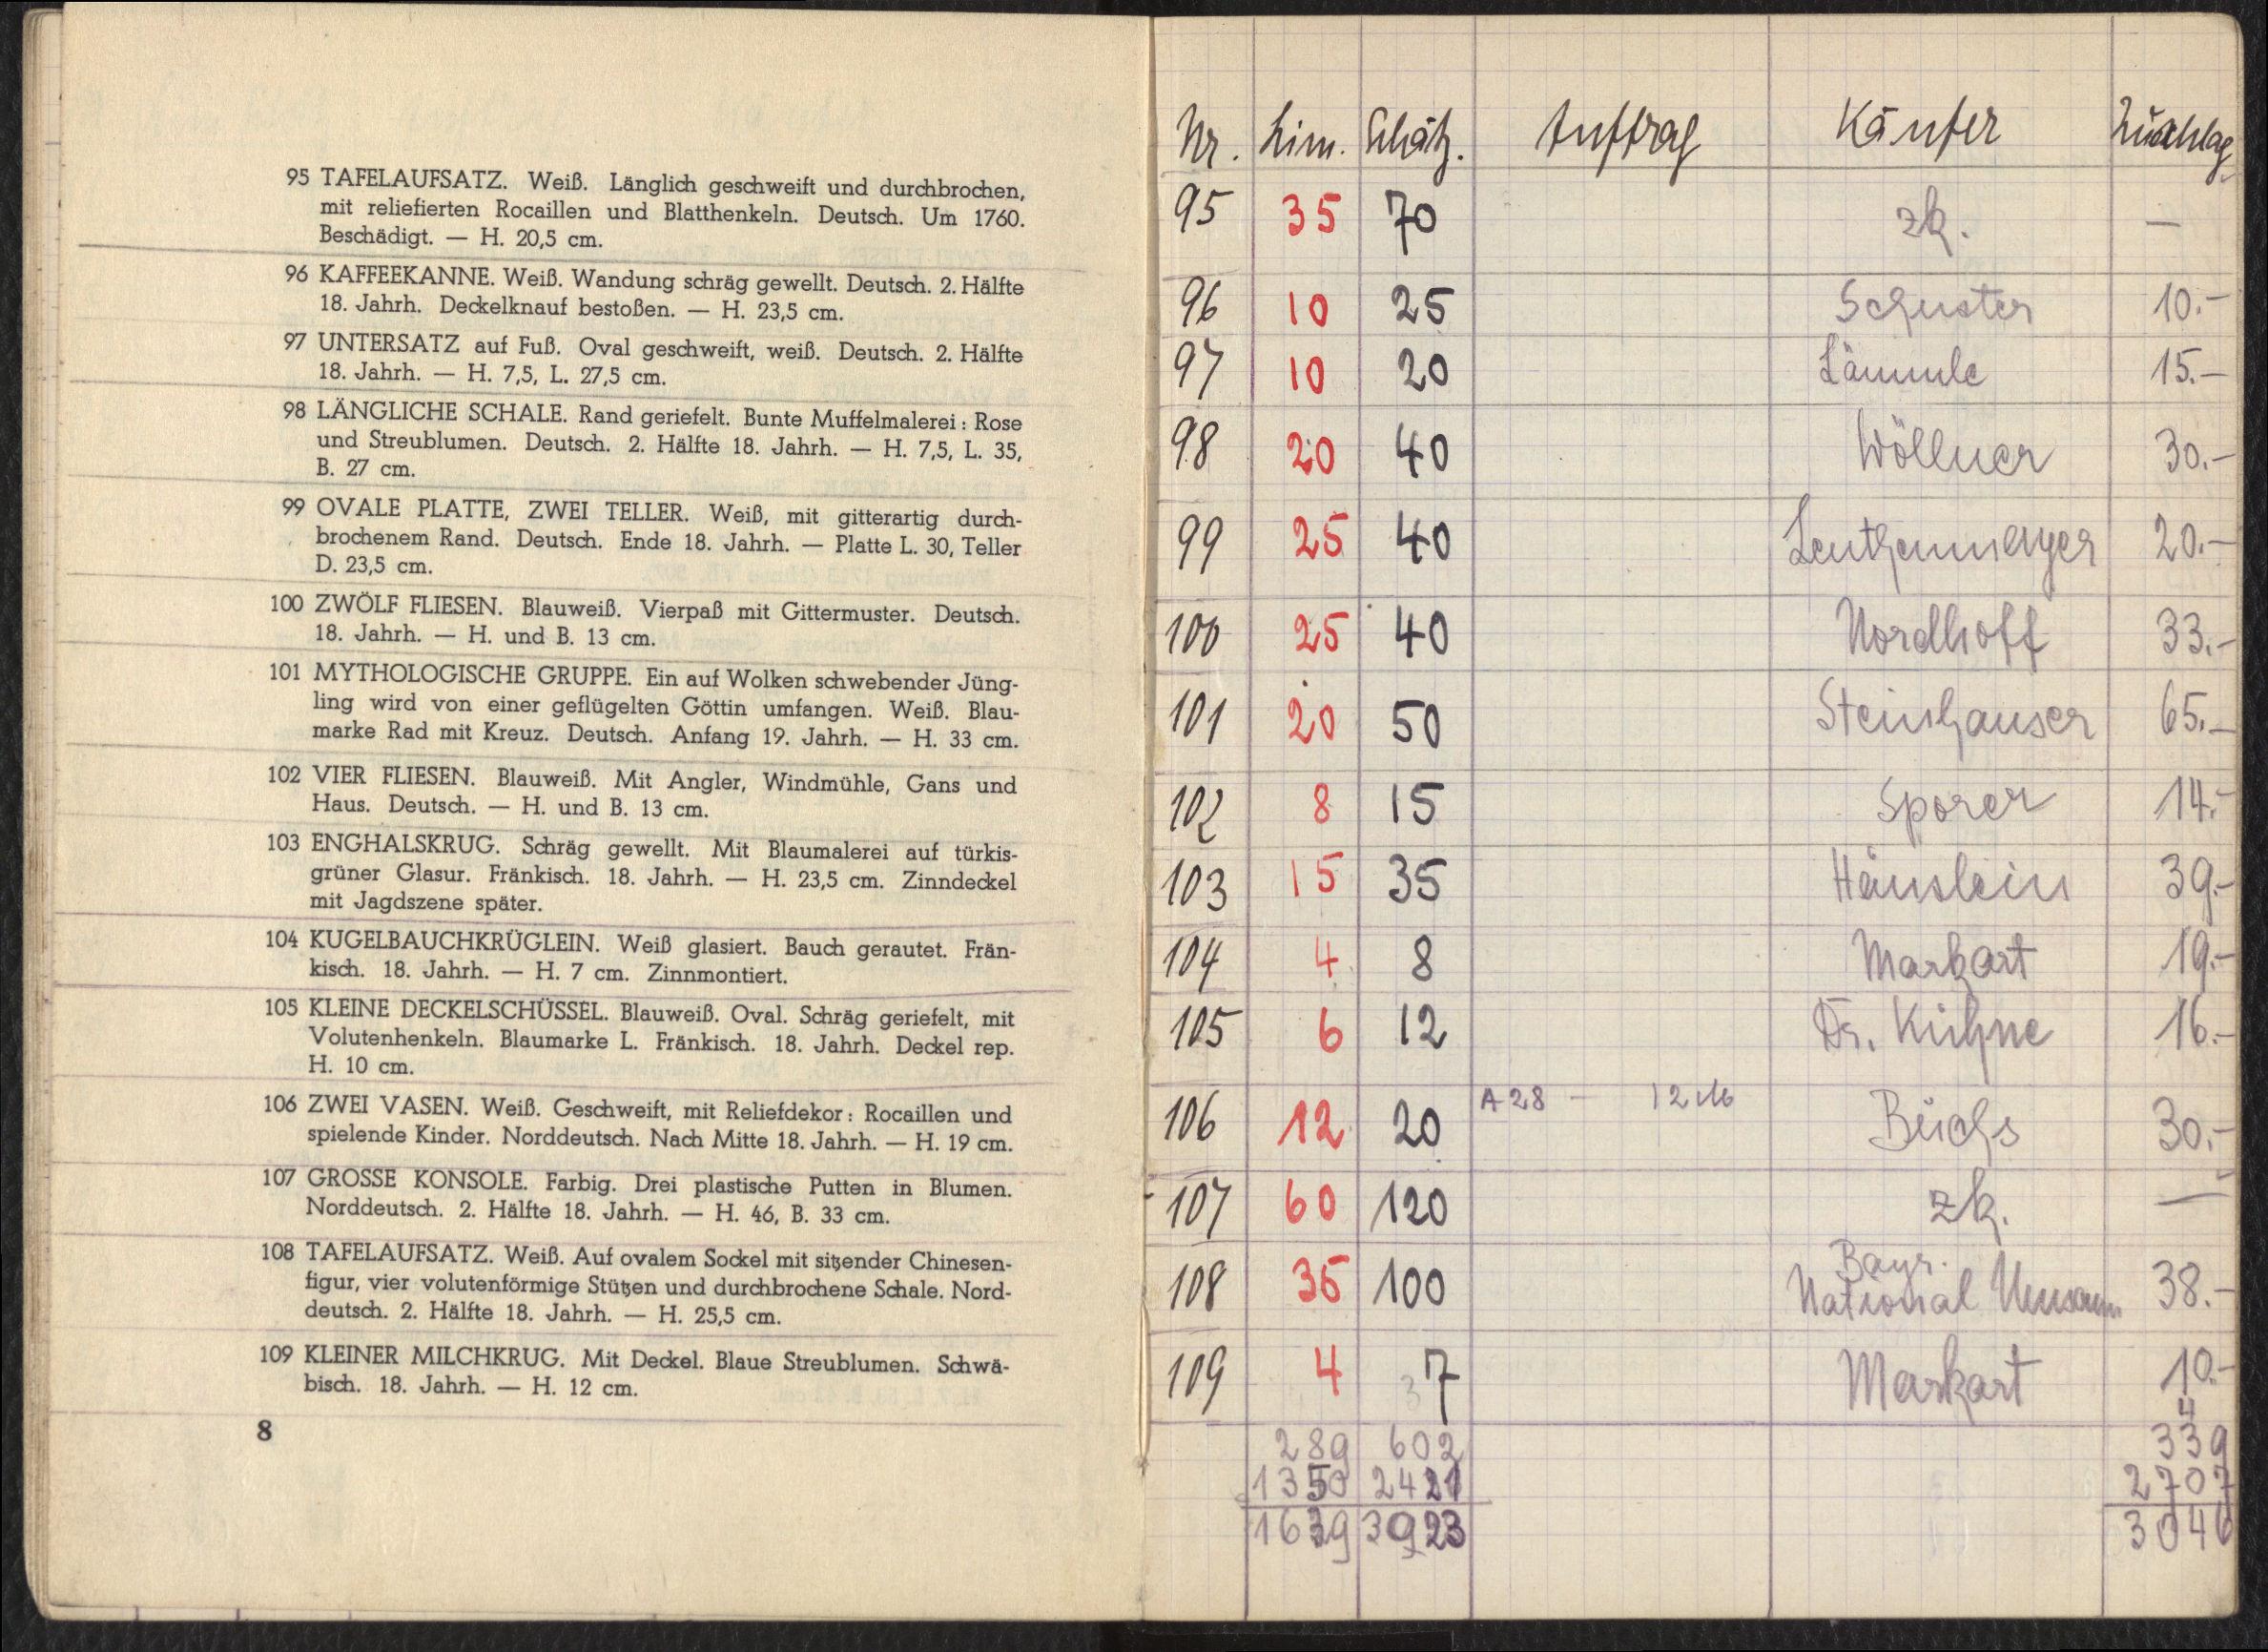 95 TAFELAUFSATZ. Weiß. Länglich geschweift und durchbrochen,
mit reliefierten Rocaillen und Blatthenkeln. Deutsch. Um 1760.
Beschädigt. — H. 20,5 cm.
96 KAFFEEKANNE. Weiß. Wandung schräg gewellt. Deutsch. 2. Hälfte
18. Jahrh. Deckelknauf bestoßen. — H. 23,5 cm.
97 UNTERSATZ auf Fuß. Oval geschweift, weiß. Deutsch. 2. Hälfte
18. Jahrh. — H. 7,5, L. 27,5 cm.
98 LÄNGLICHE SCHALE. Rand geriefelt. Bunte Muffelmalerei: Rose
und Streublumen. Deutsch. 2. Hälfte 18. Jahrh. — H. 7,5, L. 35,
B. 27 cm.
99 OVALE PLATTE, ZWEI TELLER. Weiß, mit gitterartig durch-
brochenem Rand. Deutsch. Ende 18. Jahrh. — Platte L. 30, Teller
D. 23,5 cm.
100 ZWÖLF FLIESEN. Blauweiß. Vierpaß mit Gittermuster. Deutsch.
18. Jahrh. — H. und B. 13 cm.
101 MYTHOLOGISCHE GRUPPE. Ein auf Wolken schwebender Jüng-
ling wird von einer geflügelten Göttin umfangen. Weiß. Blau-
marke Rad mit Kreuz. Deutsch. Anfang 19. Jahrh. — H. 33 cm.
102 VIER FLIESEN. Blauweiß. Mit Angler, Windmühle, Gans und
Haus. Deutsch. — H. und B. 13 cm.
103 ENGHALSKRUG. Schräg gewellt. Mit Blaumalerei auf türkis-
grüner Glasur. Fränkisch. 18. Jahrh. — H. 23,5 cm. Zinndeckel
mit Jagdszene später.
104 KUGELBAUCHKRÜGLEIN. Weiß glasiert. Bauch gerautet. Frän-
kisch. 18. Jahrh. — H. 7 cm. Zinnmontiert.
105 KLEINE DECKELSCHÜSSEL. Blauweiß. Oval. Schräg geriefelt, mit
Volutenhenkeln. Blaumarke L. Fränkisch. 18. Jahrh. Deckel rep.
H. 10 cm.
106 ZWEI VASEN. Weiß. Geschweift, mit Reliefdekor: Rocaillen und
spielende Kinder. Norddeutsch. Nach Mitte 18. Jahrh. — H. 19 cm.
107 GROSSE KONSOLE. Farbig. Drei plastische Putten in Blumen.
Norddeutsch. 2. Hälfte 18. Jahrh. — H. 46, B. 33 cm.
108 TAFELAUFSATZ. Weiß. Auf ovalem Sockel mit sitzender Chinesen-
figur, vier volutenförmige Stützen und durchbrochene Schale. Nord-
deutsch. 2. Hälfte 18. Jahrh. — H. 25,5 cm.
109 KLEINER MILCHKRUG. Mit Deckel. Blaue Streublumen. Schwä-
bisch. 18. Jahrh. — H. 12 cm.
8
Nr. Lim. Schätz. Auftrag Käufer Zuschlag
95 35 70 zk. —
96 10 25 Schuster 10.-
97 10 20 Lämmle 15.-
98 20 40 Wöllner 30.-
99 25 40 Leuthenmayer 20.-
100 25 40 Nordhoff 33.-
101 20 50 Steinhauser 65.-
102 8 15 Sporer 14.-
103 15 35 Häuslein 39.-
104 4 8 Markart 19.-
105 6 12 Dr. Kühne 16.-
106 12 20 A 28 — 12 Büchs 30.-
107 60 120 zk. —
108 35 100 Bayr. National Museum 38.-
109 4 7 Markart 10.-
289 602 339
1350 2421 2707
1639 3923 3046